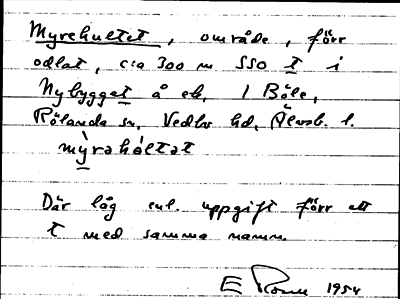 Myrehultet, område, förr
odlat, c:a 300 m SSO t i
Nybygget å ek. 1 Böle,
Rölanda sn, Vedbo hd, Älvsb. l.
myrahòltat
Där låg enl. uppgift förr ett
t med samma namn.
E 1954